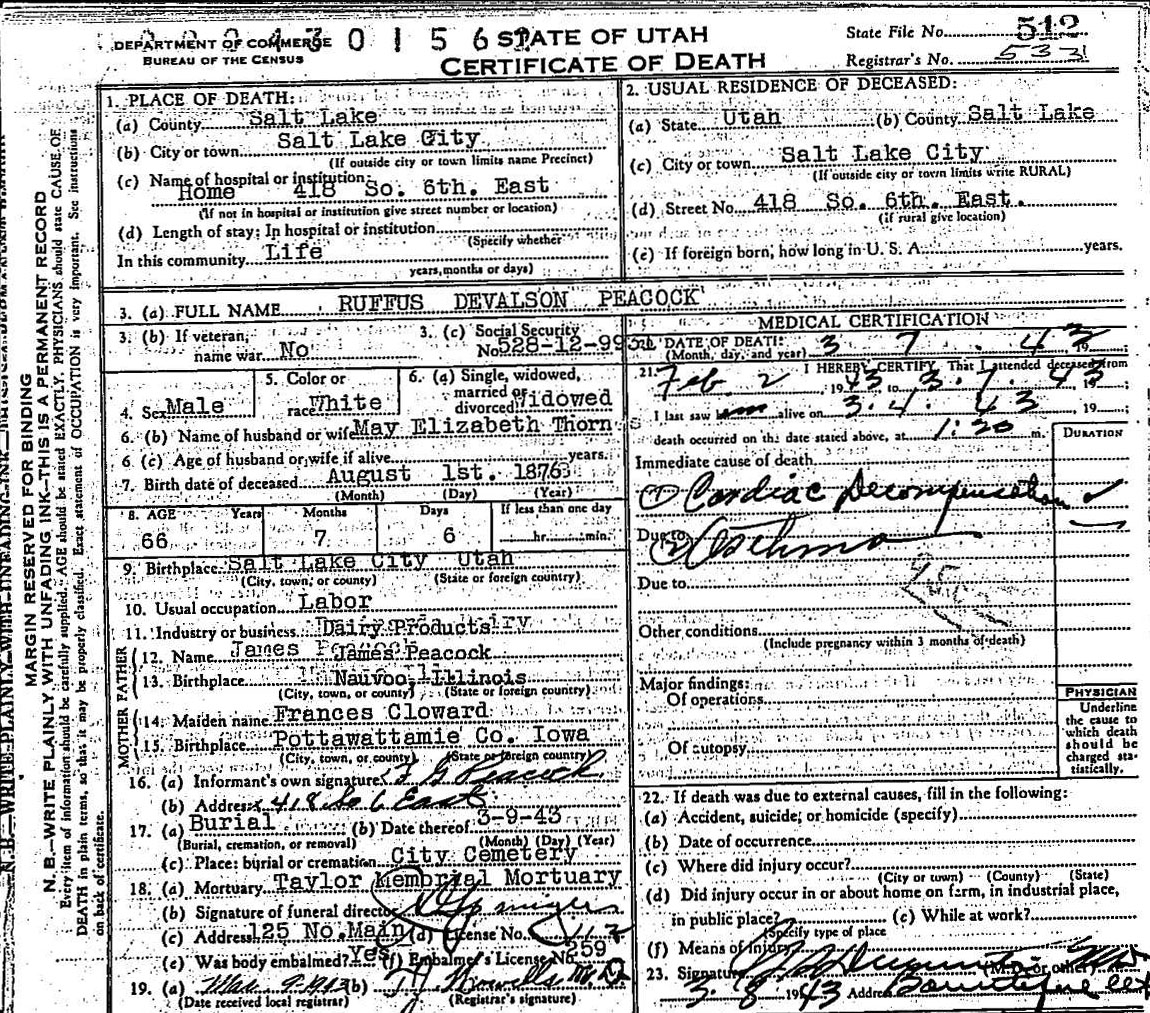 DEPARTMENT OF COMMERCE
BUREAU OF THE CENSUS
STATE OF UTAH
CERTIFICATE OF DEATH
State File No. 512
Registrar's No. 533
MARGIN RESERVED FOR BINDING
N. B.—WRITE PLAINLY WITH UNFADING INK—THIS IS A PERMANENT RECORD
Every item of information should be carefully supplied. AGE should be stated EXACTLY. PHYSICIANS should state CAUSE OF
DEATH in plain terms, so that it may be properly classified. Exact statement of OCCUPATION is very important. See instructions
on back of certificate.
1. PLACE OF DEATH:
(a) County Salt Lake
(b) City or town Salt Lake City
(If outside city or town limits name Precinct)
(c) Name of hospital or institution:
Home 418 So. 6th. East
(If not in hospital or institution give street number or location)
(d) Length of stay: In hospital or institution
(Specify whether
In this community Life
years, months or days)
2. USUAL RESIDENCE OF DECEASED:
(a) State Utah (b) County Salt Lake
(c) City or town Salt Lake City
(If outside city or town limits write RURAL)
(d) Street No. 418 So. 6th. East.
(if rural give location)
(e) If foreign born, how long in U. S. A. years.
3. (a) FULL NAME RUFFUS DEVALSON PEACOCK
3. (b) If veteran,
name war No
3. (c) Social Security
No. 528-12-99
4. Sex Male
5. Color or
race White
6. (a) Single, widowed,
married or
divorced Widowed
6. (b) Name of husband or wife May Elizabeth Thorn
6 (c) Age of husband or wife if alive years.
7. Birth date of deceased August 1st. 1876
(Month) (Day) (Year)
8. AGE Years Months Days If less than one day
66 7 6 hr. min.
9. Birthplace Salt Lake City Utah
(City, town, or county) (State or foreign country)
10. Usual occupation Labor
11. Industry or business Dairy Products
FATHER
12. Name James Peacock
13. Birthplace Nauvoo Illinois
(City, town, or county) (State or foreign country)
MOTHER
14. Maiden name Frances Cloward
15. Birthplace Pottawattamie Co. Iowa
(City, town, or county) (State or foreign country)
16. (a) Informant's own signature Peacock
(b) Address 418 So 6 East
17. (a) Burial (b) Date thereof 3-9-43
(Burial, cremation, or removal) (Month) (Day) (Year)
(c) Place: burial or cremation City Cemetery
18. (a) Mortuary Taylor Memorial Mortuary
(b) Signature of funeral director
(c) Address 125 No. Main (d) License No. 112
(e) Was body embalmed? Yes (f) Embalmer's License No. 359
19. (a) Mar 9-1943 (b) M. D.
(Date received local registrar) (Registrar's signature)
MEDICAL CERTIFICATION
20. DATE OF DEATH: 3 7 43 19
(Month, day, and year)
21. I HEREBY CERTIFY That I attended deceased from
Feb 2 1943 to 3.7.43, 19
I last saw him alive on 3.4.43, 19
death occurred on the date stated above, at 1:20 m.
DURATION
Immediate cause of death
(1) Cardiac Decompensation
Due to (2) Asthma
Due to
Other conditions
(Include pregnancy within 3 months of death)
Major findings:
Of operations
Of autopsy
PHYSICIAN
Underline
the cause to
which death
should be
charged sta-
tistically.
22. If death was due to external causes, fill in the following:
(a) Accident, suicide, or homicide (specify)
(b) Date of occurrence
(c) Where did injury occur?
(City or town) (County) (State)
(d) Did injury occur in or about home on farm, in industrial place,
in public place? (c) While at work?
(Specify type of place
(f) Means of injury
23. Signature (M. D. or other)
3. 8 1943 Address Bountiful